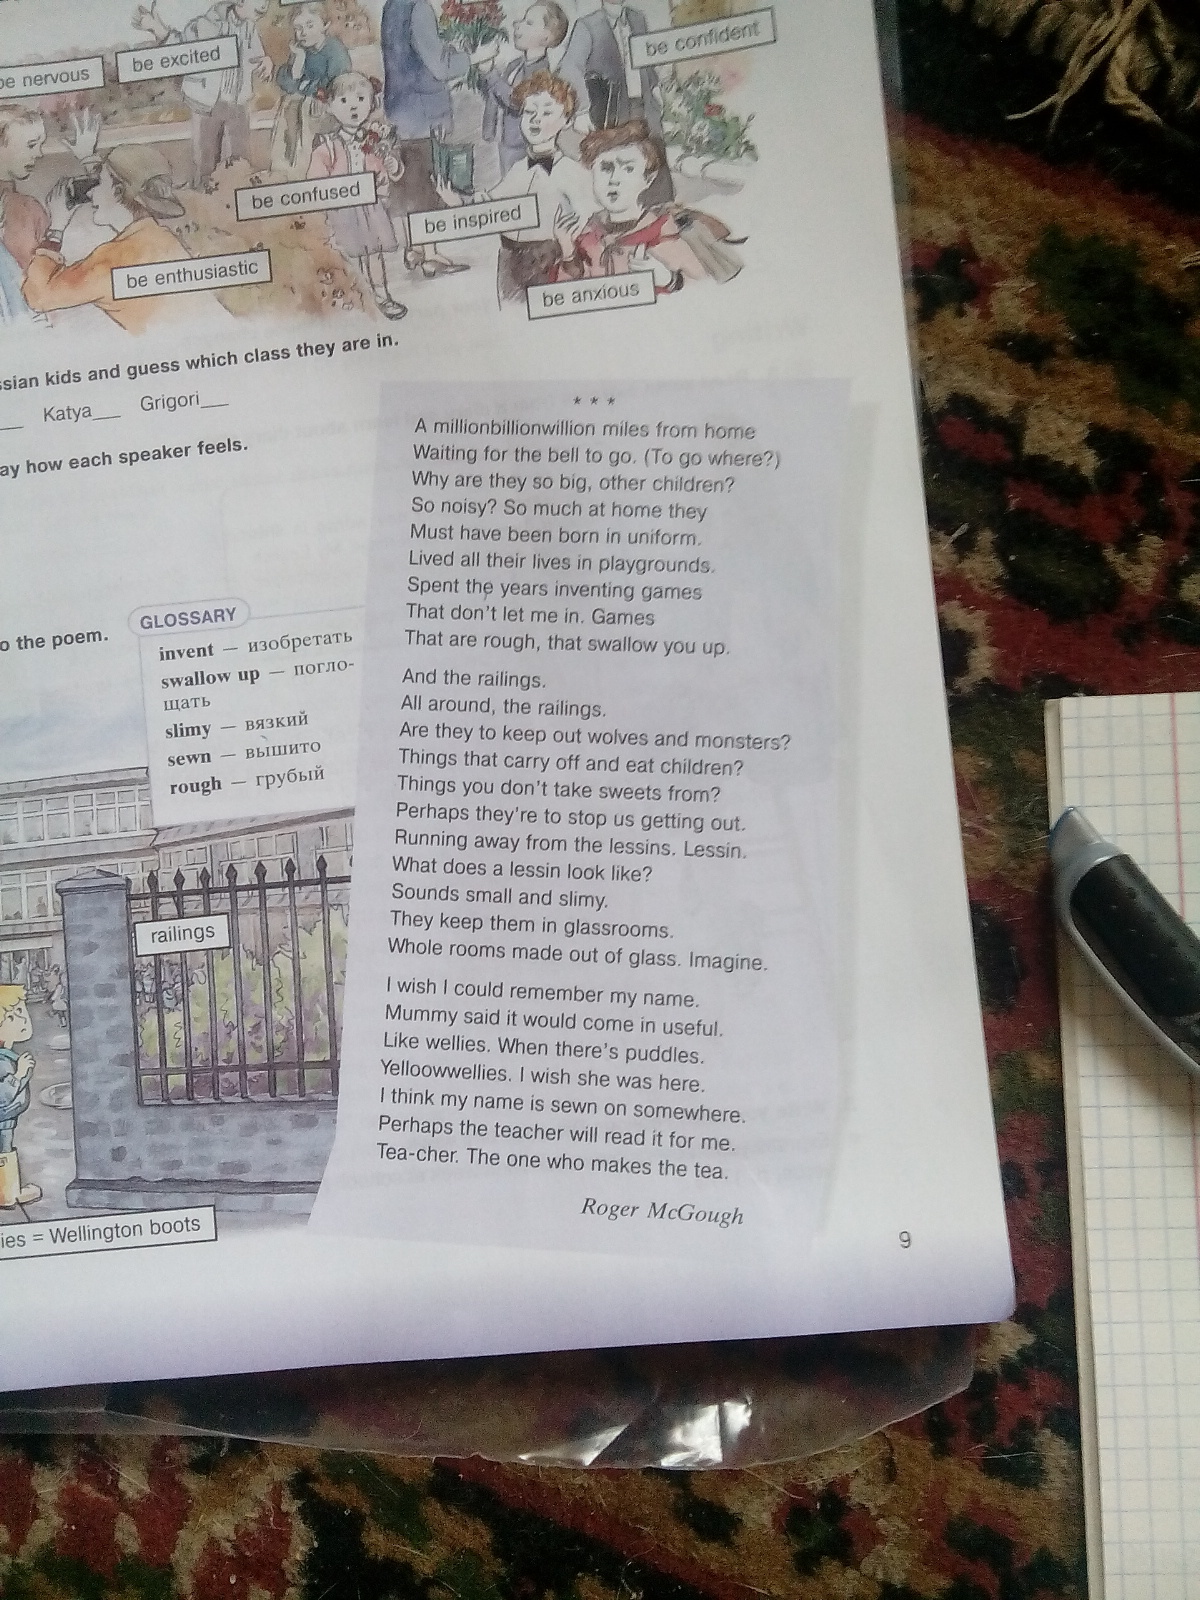 be nervous
be excited
be confident
be confused
be inspired
be enthusiastic
be anxious
kids and guess which class they are in.
Katya___ Grigori___
how each speaker feels.
to the poem.
GLOSSARY
invent — изобретать
swallow up — погло-
щать
slimy — вязкий
sewn — вышито
rough — грубый
railings
= Wellington boots
* * *
A millionbillionwillion miles from home
Waiting for the bell to go. (To go where?)
Why are they so big, other children?
So noisy? So much at home they
Must have been born in uniform.
Lived all their lives in playgrounds.
Spent the years inventing games
That don't let me in. Games
That are rough, that swallow you up.
And the railings.
All around, the railings.
Are they to keep out wolves and monsters?
Things that carry off and eat children?
Things you don't take sweets from?
Perhaps they're to stop us getting out.
Running away from the lessins. Lessin.
What does a lessin look like?
Sounds small and slimy.
They keep them in glassrooms.
Whole rooms made out of glass. Imagine.
I wish I could remember my name.
Mummy said it would come in useful.
Like wellies. When there's puddles.
Yelloowwellies. I wish she was here.
I think my name is sewn on somewhere.
Perhaps the teacher will read it for me.
Tea-cher. The one who makes the tea.
Roger McGough
9